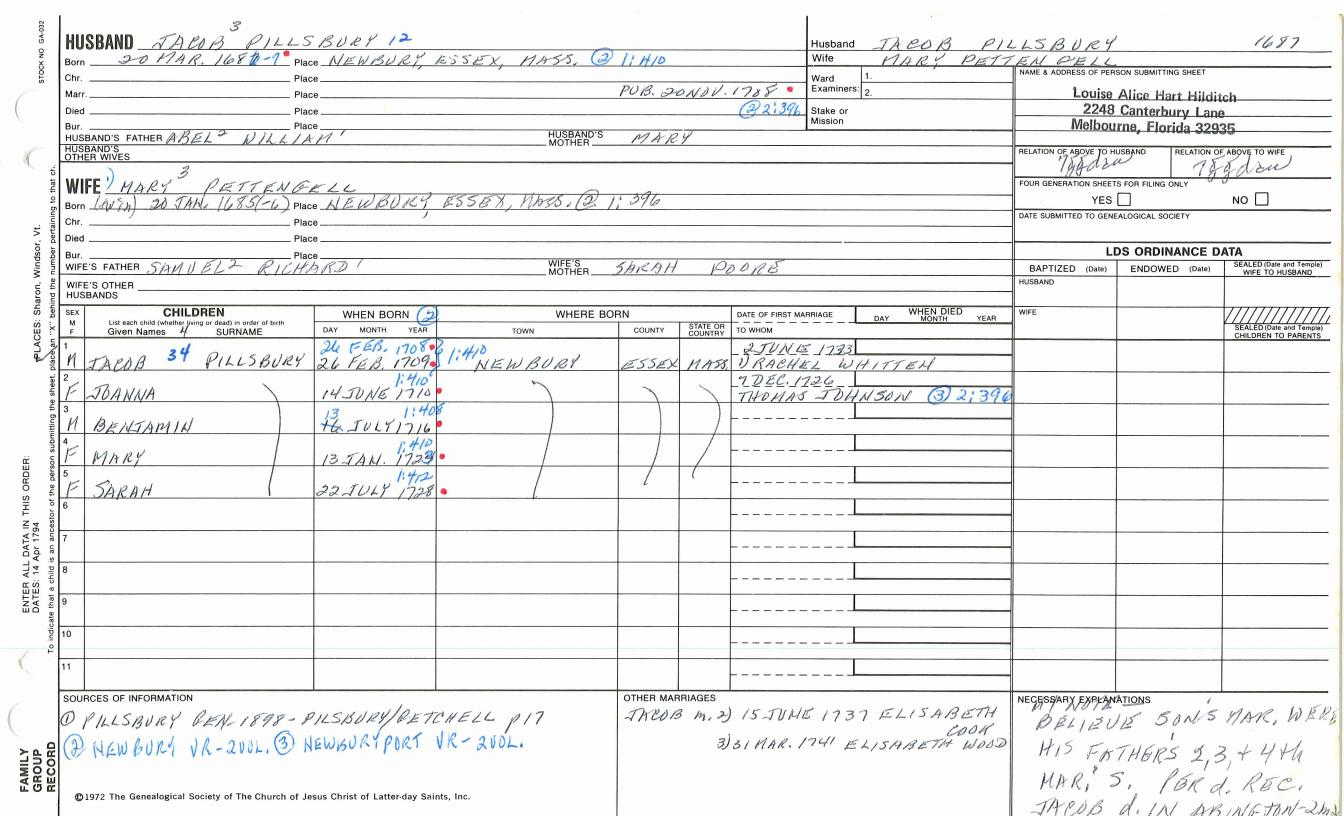 STOCK NO. GA-032
PLACES: Sharon, Windsor, Vt.
ENTER ALL DATA IN THIS ORDER:
DATES: 14 Apr 1794
To indicate that a child is an ancestor of the person submitting the sheet, place an "X" behind the number pertaining to that ch.
FAMILY GROUP RECORD
HUSBAND JACOB 3 PILLSBURY 12
Born 20 MAR. 168 -7 Place NEWBURY, ESSEX, MASS. ② 1:410
Chr. Place
Marr. Place PUB. 20 NOV. 1708
Died Place ② 2:396
Bur. Place
HUSBAND'S FATHER ABEL 2 WILLIAM 1 HUSBAND'S MOTHER MARY
HUSBAND'S OTHER WIVES
WIFE 1) MARY 3 PETTENGELL
Born (twin) 20 JAN. 1685(-6) Place NEWBURY, ESSEX, MASS. ② 1:396
Chr. Place
Died Place
Bur. Place
WIFE'S FATHER SAMUEL 2 RICHARD 1 WIFE'S MOTHER SARAH POORE
WIFE'S OTHER HUSBANDS
Husband JACOB PILLSBURY 1687
Wife MARY PETTENGELL
Ward Examiners: 1.
2.
Stake or Mission
NAME & ADDRESS OF PERSON SUBMITTING SHEET
Louise Alice Hart Hilditch
2248 Canterbury Lane
Melbourne, Florida 32935
RELATION OF ABOVE TO HUSBAND RELATION OF ABOVE TO WIFE
FOUR GENERATION SHEETS FOR FILING ONLY
YES NO
DATE SUBMITTED TO GENEALOGICAL SOCIETY
LDS ORDINANCE DATA
BAPTIZED (Date) ENDOWED (Date) SEALED (Date and Temple) WIFE TO HUSBAND
HUSBAND
WIFE
SEALED (Date and Temple) CHILDREN TO PARENTS
SEX M F
CHILDREN
List each child (whether living or dead) in order of birth
Given Names 4 SURNAME
WHEN BORN ②
DAY MONTH YEAR
WHERE BORN
TOWN COUNTY STATE OR COUNTRY
DATE OF FIRST MARRIAGE
TO WHOM
WHEN DIED
DAY MONTH YEAR
26 FEB. 1708 2 JUNE 1733
1 M JACOB 34 PILLSBURY 26 FEB. 1709 1:410 NEWBURY ESSEX MASS. 1) RACHEL WHITTEN
1:410 7 DEC. 1726
2 F JOANNA 14 JUNE 1710 THOMAS JOHNSON ③ 2:396
13 1:408
3 M BENJAMIN 16 JULY 1716
1:410
4 F MARY 13 JAN. 1723
1:412
5 F SARAH 22 JULY 1728
6
7
8
9
10
11
SOURCES OF INFORMATION
① PILLSBURY GEN. 1898 - PILSBURY/GETCHELL p17
② NEWBURY VR-2VOL. ③ NEWBURYPORT VR-2VOL.
©1972 The Genealogical Society of The Church of Jesus Christ of Latter-day Saints, Inc.
OTHER MARRIAGES
JACOB m. 2) 15 JUNE 1737 ELISABETH COOK
3) 31 MAR. 1741 ELISABETH WOOD
NECESSARY EXPLANATIONS
BELIEVE SON'S MAR. WERE
HIS FATHER'S 2, 3, + 4th
MAR'S. PER d. REC.
JACOB d. IN ABINGTON